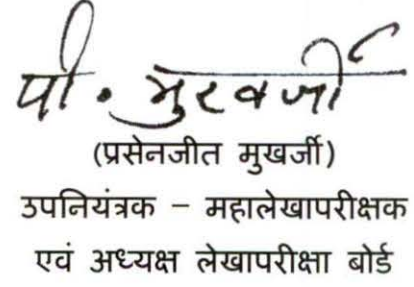 पी. मुखर्जी
(प्रसेनजीत मुखर्जी)
उपनियंत्रक – महालेखापरीक्षक
एवं अध्यक्ष लेखापरीक्षा बोर्ड